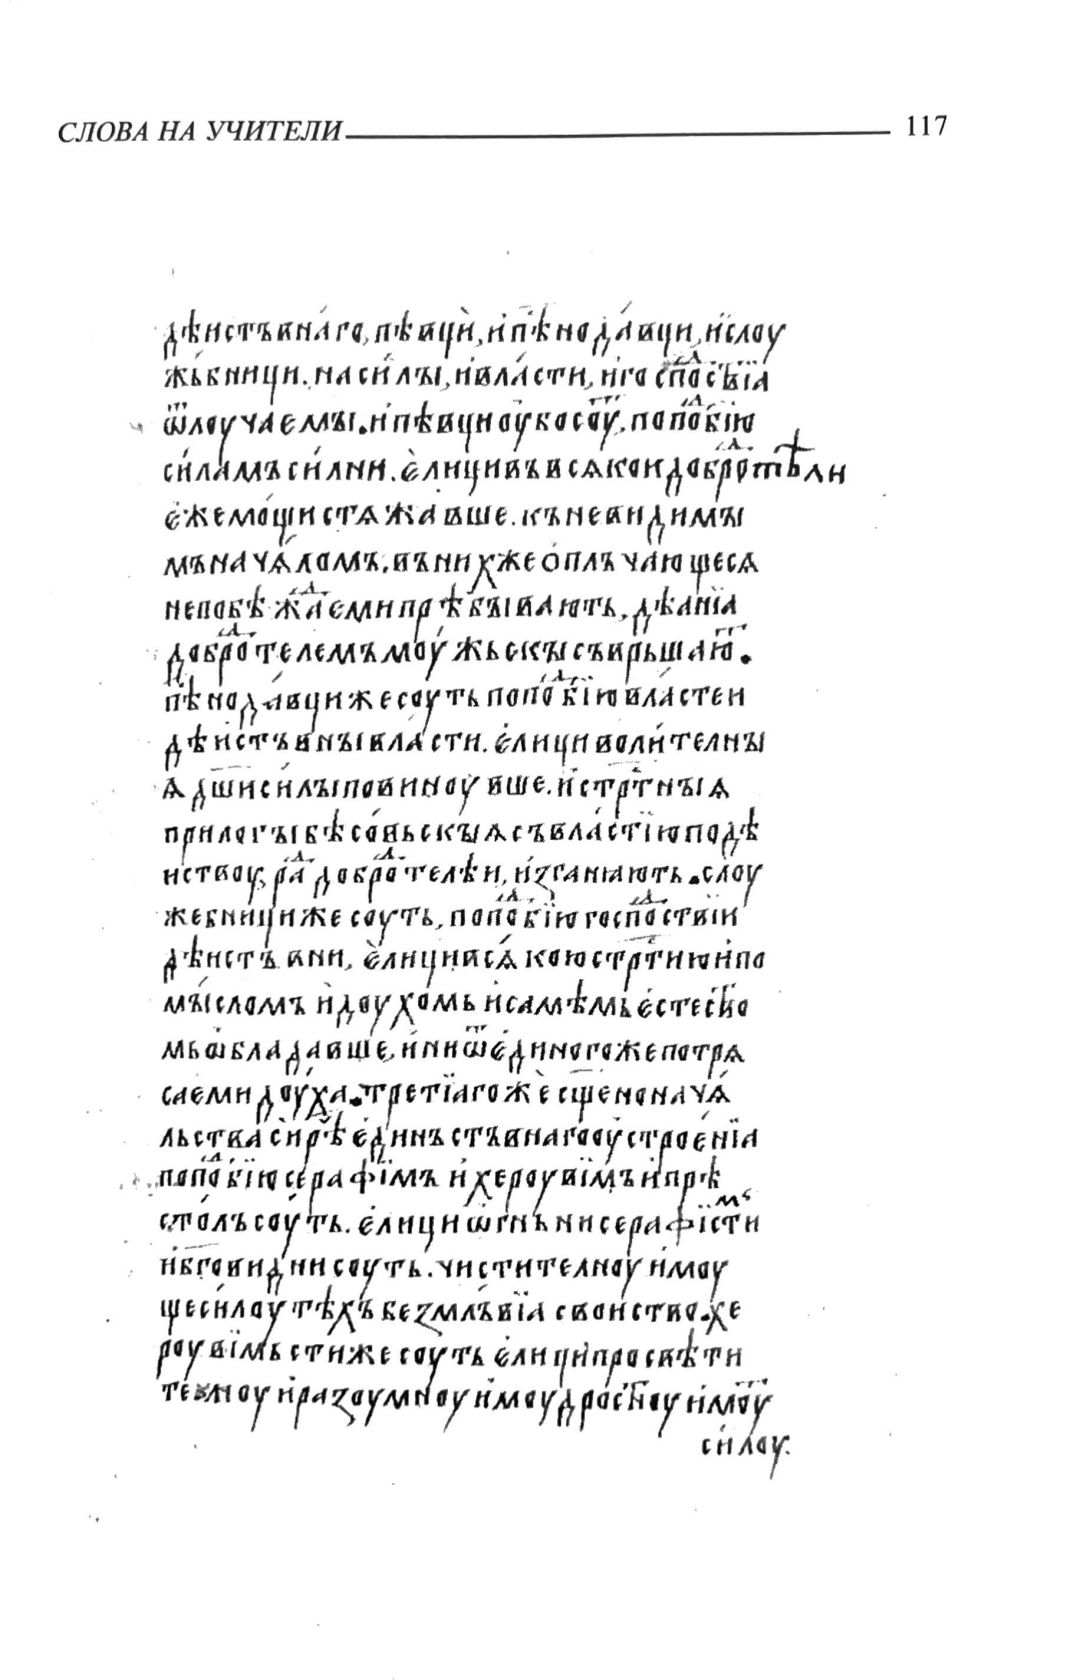 СЛОВА НА УЧИТЕЛИ 117
дѣистъвна́го, пѣвцѝ, и҆пѣнода́вци, и҆слоу
жьбници. на си́лы, и҆вла́сти, и҆госпⷣосвїа
ѿлоучаемы. и҆пѣвци оу҆босоуⷮ, попоⷣбїю
си́ламъ си́лни. є҆лици въвсѧкои добрⷣотѣли
є҆же мо́щи стѧжа́вше. къневидимы
мъ нача́ломъ, въни́хже о҆плъчающесѧ
непобѣжⷣаеми прѣбываютъ, дѣанїа
добрⷣотелемъ моу́жьскы съврьшаюⷮ.
пѣнода́вциже соуть попоⷣбїю властеи
дѣистъвны вла́сти. є҆лици воли́телны
ѧ дш҃и си́лы повиноувше. и҆стрⷭтныѧ
прилогы бѣсо́вьскыѧ съвла́стїю подѣ
иствоу, раⷣ добрⷣотелѣи, и҆зганıають. слоу
жебници же соуть, попоⷣбїю госпоⷣствїи
дѣистъвни, є҆лици всѧ́кою стрⷭтию и҆по
мы́сломъ и҆доухо́мь и҆самѣмь є҆стесⷭво
мь ѡ҆блада́вше, и҆ниѿ є҆диногоже потрѧ
саеми доу́ха. третїагожѐ сщ҃еноначѧ́
льства си́рѣⷱ є҆динъствнаго оу҆строе́нїа
попоⷣбїю серафїмъ и҆хероувїмъ и҆прѣ
сто́лъ соу́ть. є҆лици ѡ҆гньни серафїмⷭти
и҆бг҃овидни соуть. чистителноу и҆моу
ще си́лоу тѣхъ безмлъ́вїа своиство. хе
роувїмьсти же соуть є҆лици просвѣти
телноу и҆разоумноу и҆моудросⷭноу и҆моуⷮ
си́лоу.